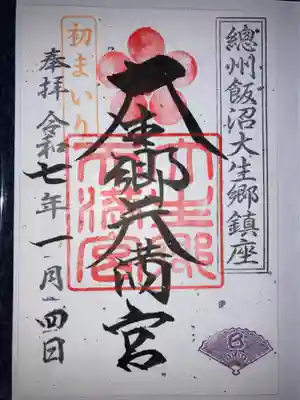 總州飯沼大生郷鎮座
大生郷天満宮
初まいり
奉拝 令和七年一月四日
大生郷
天満宮
巳